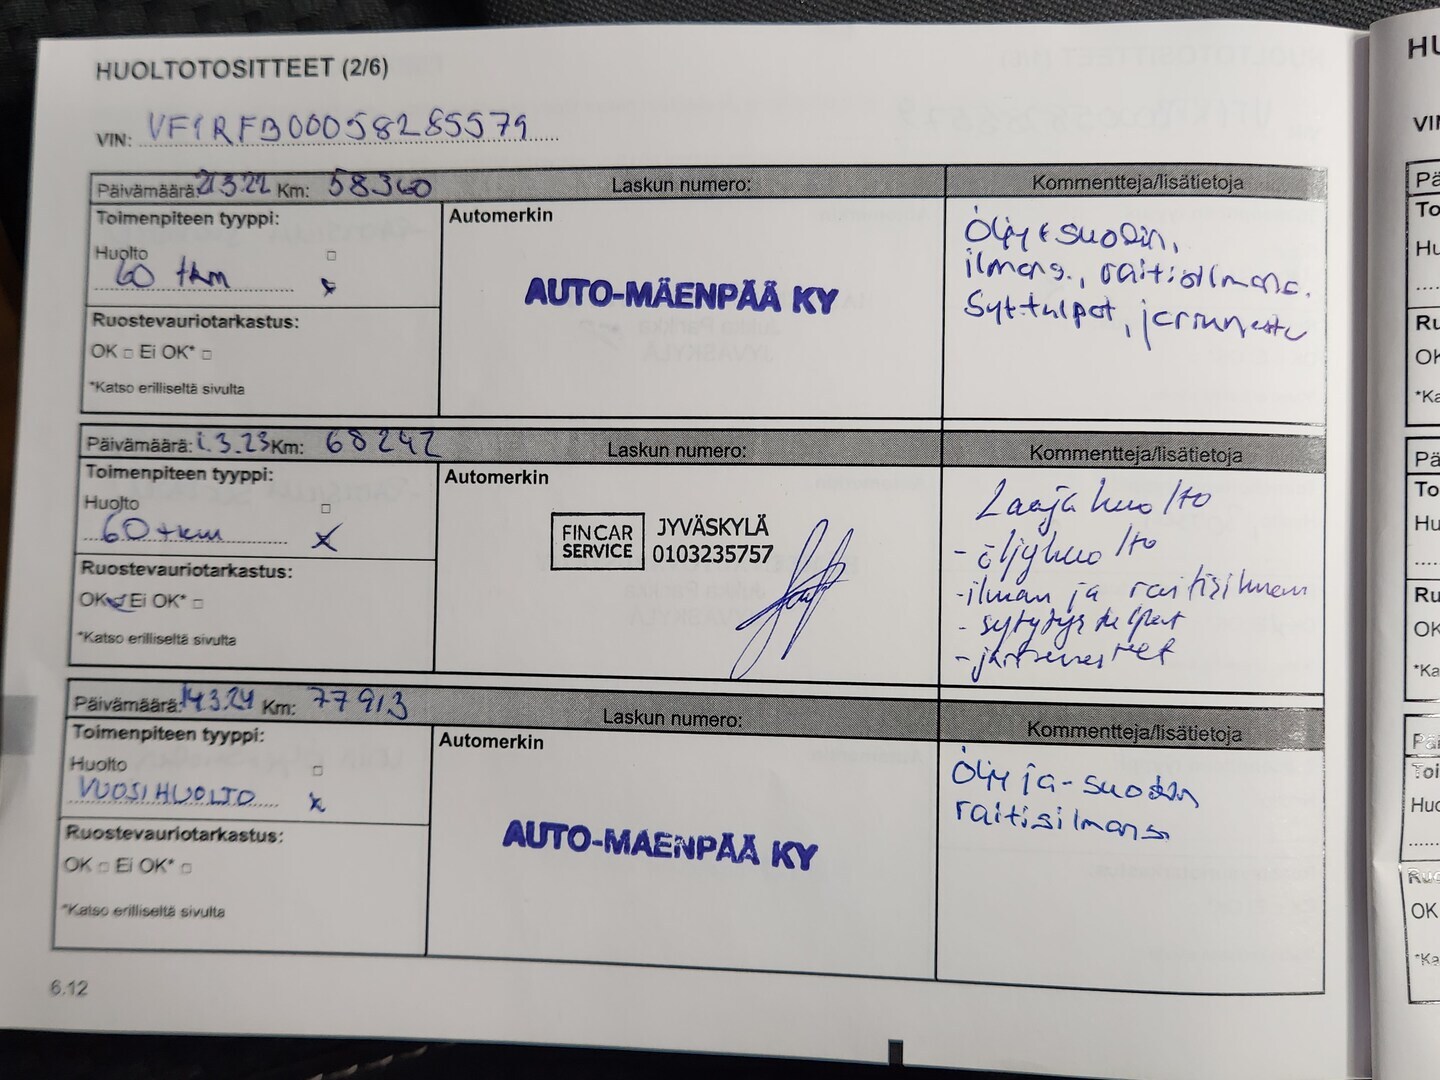 HUOLTOTOSITTEET (2/6)
VIN: VF1RFB00058285579
Päivämäärä: 21.3.22 Km: 58360 Laskun numero: Kommentteja/lisätietoja
Toimenpiteen tyyppi:
Huolto
60 tkm x
Ruostevauriotarkastus:
OK □ Ei OK* □
*Katso erilliseltä sivulta
Automerkin
AUTO-MÄENPÄÄ KY
Öljy + suodin,
ilmans., raitisilmans.
Syt.tulpat, jarruneste
Päivämäärä: 1.3.23 Km: 68242 Laskun numero: Kommentteja/lisätietoja
Toimenpiteen tyyppi:
Huolto
60 tkm x
Ruostevauriotarkastus:
OK Ei OK* □
*Katso erilliseltä sivulta
Automerkin
FIN CAR SERVICE
JYVÄSKYLÄ
0103235757
Laaja huolto
- öljyhuolto
- ilman ja raitisilman
- sytytystulpat
- jarrunesteet
Päivämäärä: 14.3.24 Km: 77913 Laskun numero: Kommentteja/lisätietoja
Toimenpiteen tyyppi:
Huolto
VUOSIHUOLTO x
Ruostevauriotarkastus:
OK □ Ei OK* □
*Katso erilliseltä sivulta
Automerkin
AUTO-MÄENPÄÄ KY
Öljy ja-suodin
raitisilmans
6.12
HU
VIN
Pä
To
Hu
Ru
OK
*Ka
Pä
To
Hu
Ru
OK
*Ka
Pä
Toi
Huo
Ruo
OK
*Ka